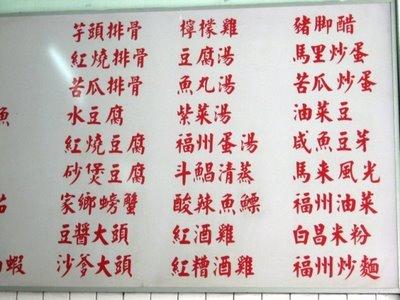 芋頭排骨 檸檬雞 豬脚醋
紅燒排骨 豆腐湯 馬里炒蛋
苦瓜排骨 魚丸湯 苦瓜炒蛋
魚 水豆腐 紫菜湯 油菜豆
紅燒豆腐 福州蛋湯 咸魚豆芽
砂煲豆腐 斗鯧清蒸 馬來風光
家鄉螃蟹 酸辣魚鰾 福州油菜
豆醬大頭 紅酒雞 白昌米粉
蝦 沙爹大頭 紅糟酒雞 福州炒麵